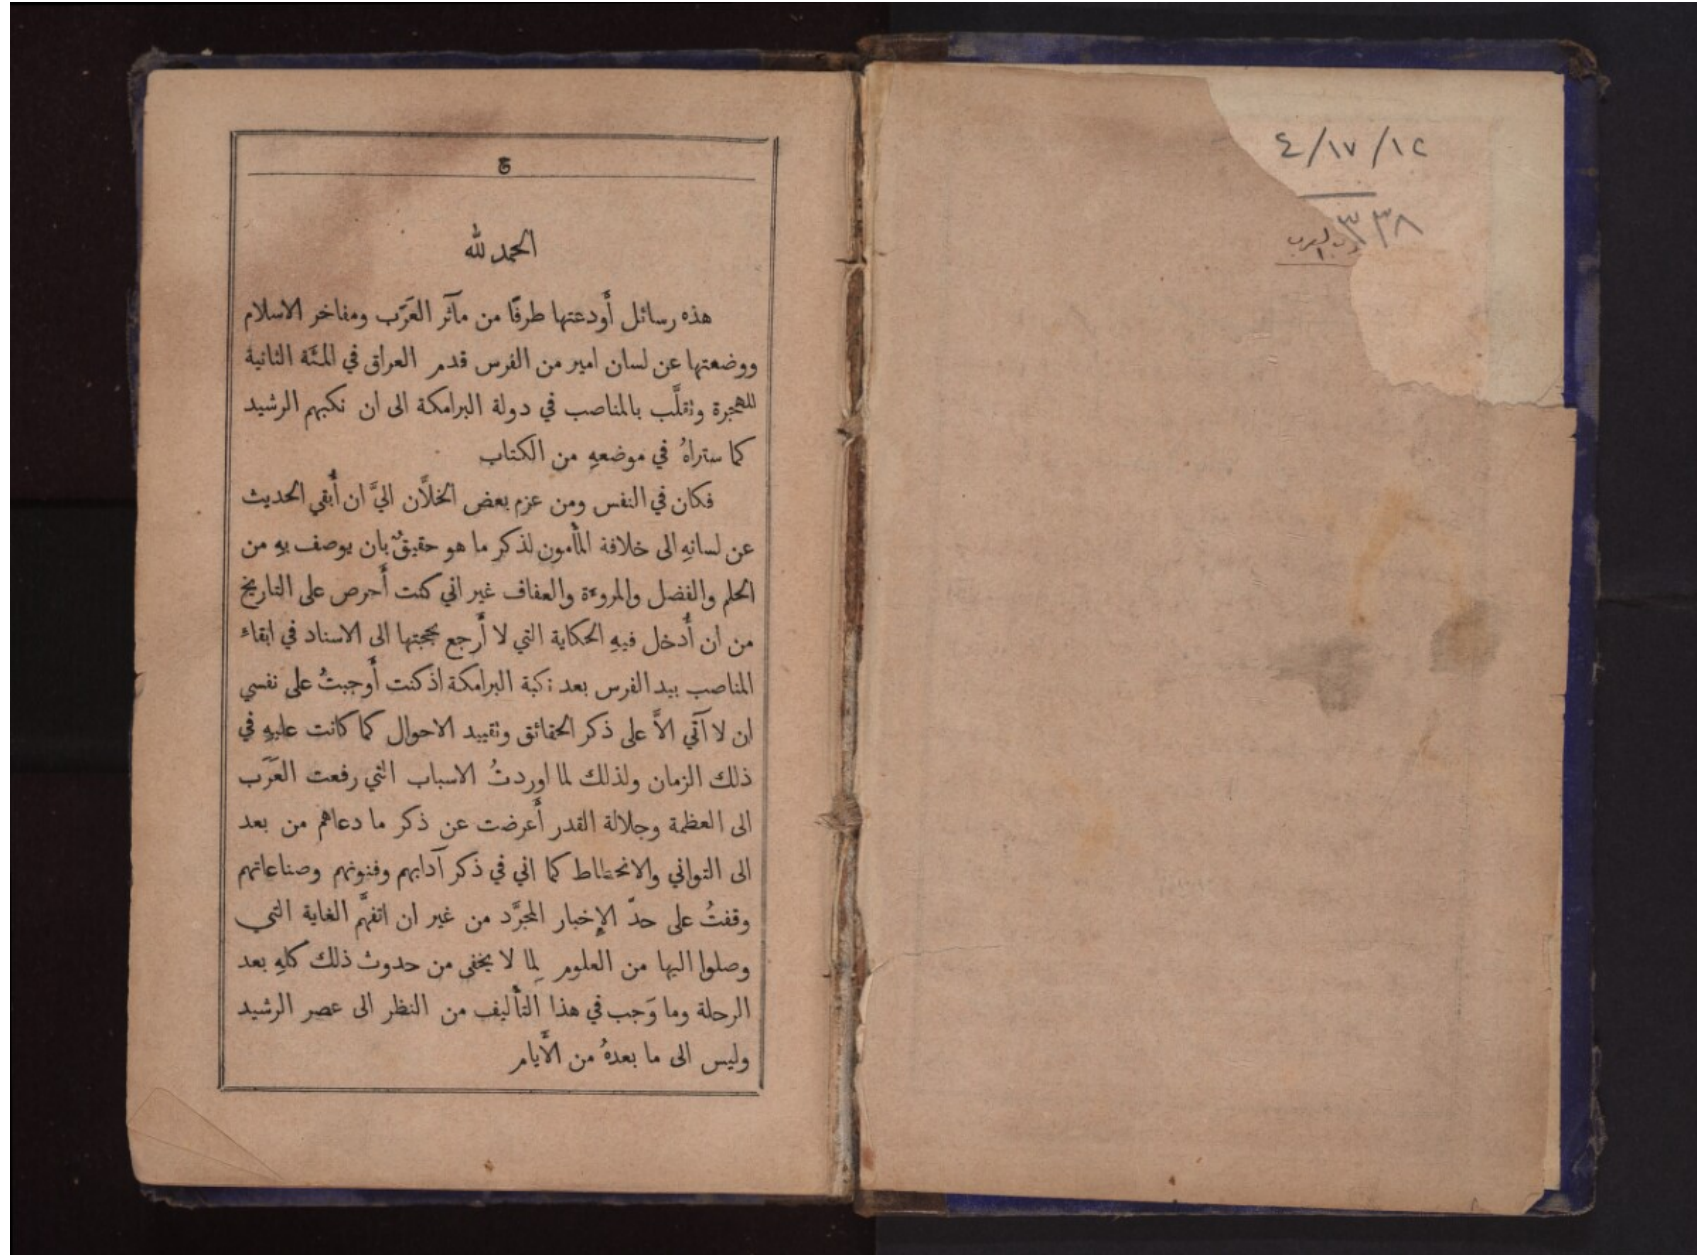 ٤/١٧/١٢
٣٣٨
ج
الحمد لله
هذه رسائل أَودعتها طرفًا من مآثر العَرَب ومفاخر الاسلام
ووضعتها عن لسان امير من الفرس قدم العراق في المئَة الثانية
للهجرة وتقلَّب بالمناصب في دولة البرامكة الى ان نكبهم الرشيد
كما ستراهُ في موضعهِ من الكتاب
فكان في النفس ومن عزم بعض الخلاَّن اليَّ ان أُبقي الحديث
عن لسانهِ الى خلافة المأْمون لذكر ما هو حقيقٌ بان يوصف بهِ من
الحلم والفضل والمروءة والعفاف غير اني كنت أَحرص على التاريخ
من ان أُدخل فيهِ الحكاية التي لا أَرجع بحجتها الى الاسناد في ابقاء
المناصب بيد الفرس بعد نكبة البرامكة اذ كنت أَوجبتُ على نفسي
ان لا آتي الاَّ على ذكر الحقائق وتقييد الاحوال كما كانت عليهِ في
ذلك الزمان ولذلك لما اوردتُ الاسباب التي رفعت العَرَب
الى العظمة وجلالة القدر أَعرضت عن ذكر ما دعاهم من بعد
الى التواني والانحطاط كما اني في ذكر آدابهم وفنونهم وصناعاتهم
وقفتُ على حدّ الإِخبار المجرَّد من غير ان اتفهَّم الغاية التي
وصلوا اليها من العلوم لِما لا يخفى من حدوث ذلك كلهِ بعد
الرحلة وما وَجب في هذا التأْليف من النظر الى عصر الرشيد
وليس الى ما بعدهُ من الأَيام